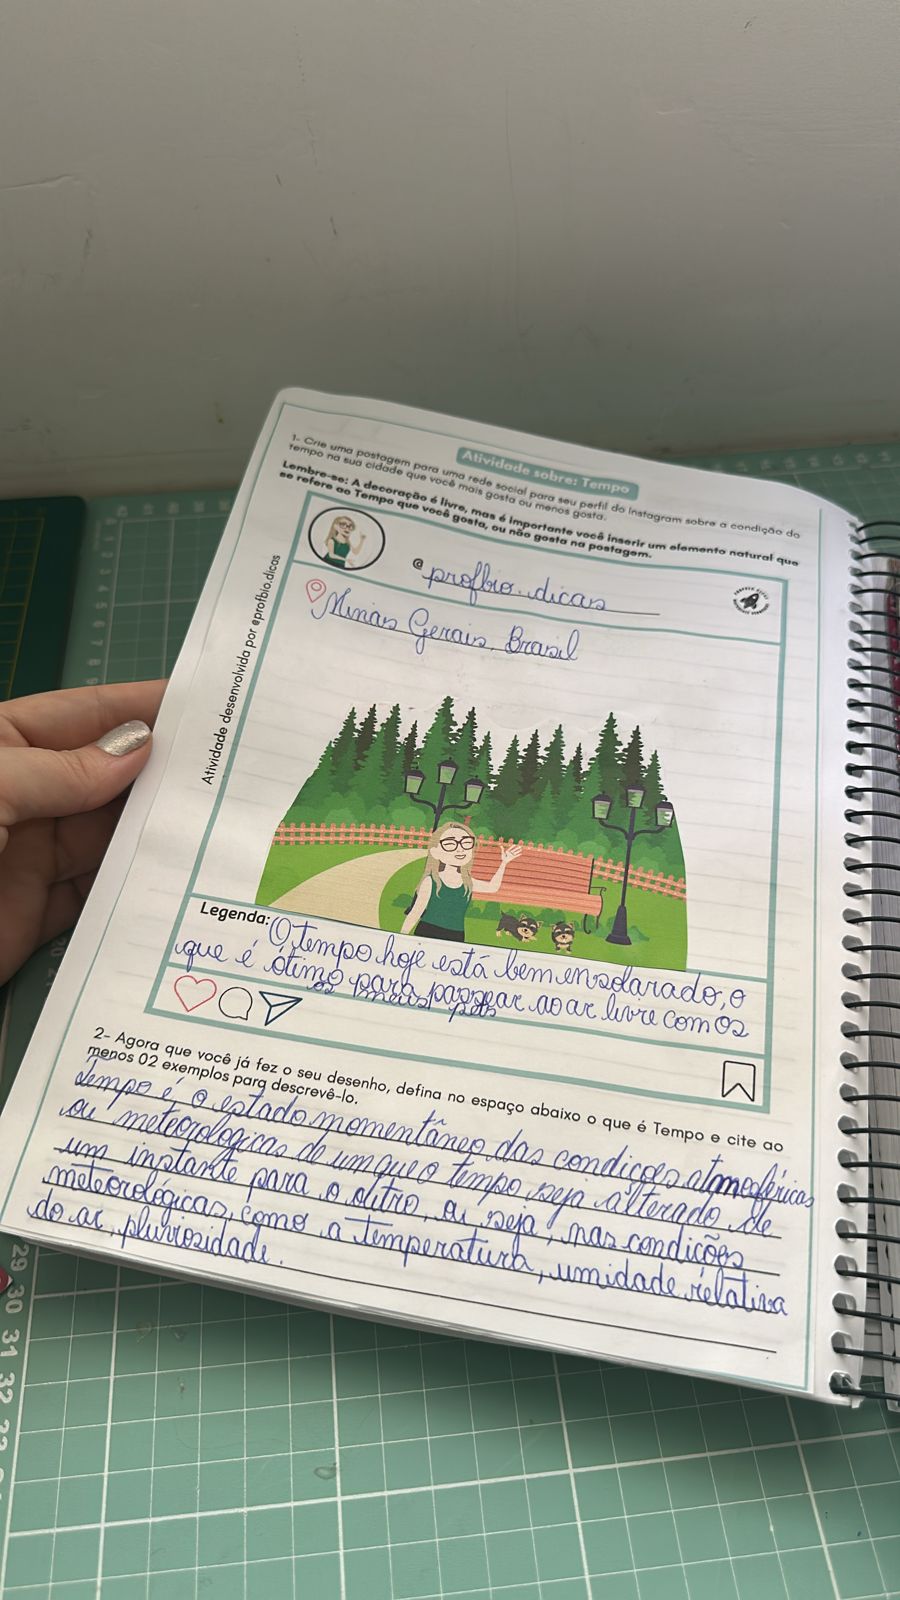 Atividade sobre: Tempo
1- Crie uma postagem para uma rede social para seu perfil do Instagram sobre a condição do
tempo na sua cidade que você mais gosta ou menos gosta.
Lembre-se: A decoração é livre, mas é importante você inserir um elemento natural que
se refere ao Tempo que você gosta, ou não gosta na postagem.
@profbio.dicas
Minas Gerais, Brasil
Atividade desenvolvida por @profbio.dicas
Legenda: O tempo hoje está bem ensolarado, o
que é ótimo para passear ao ar livre com os
2- Agora que você já fez o seu desenho, defina no espaço abaixo o que é Tempo e cite ao
menos 02 exemplos para descrevê-lo.
Tempo é o estado momentâneo das condições atmosféricas
ou meteorológicas de um que o tempo seja alterado de
um instante para o outro, ou seja, nas condições
meteorológicas, como a temperatura, umidade relativa
do ar, pluviosidade.
29
30
31
32